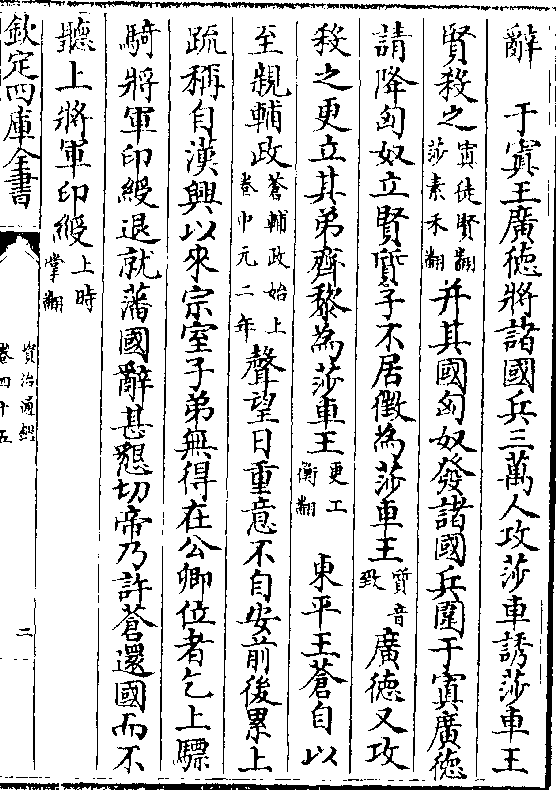 辭　于窴王廣德將諸國兵三萬人攻莎車誘莎車王
賢殺之窴徒賢翻莎素禾翻并其國匈奴發諸國兵圍于窴廣德
請降匈奴立賢質子不居徵為莎車王質音致廣德又攻
殺之更立其弟齊黎為莎車王更工衡翻　東平王蒼自以
至親輔政蒼輔政始上卷中元二年聲望日重意不自安前後累上
疏稱自漢興以來宗室子弟無得在公卿位者乞上驃
騎將軍印綬退就藩國辭甚懇切帝乃許蒼還國而不
聽上將軍印綬上時掌翻
欽定四庫全書
資治通鑑
卷四十五
二